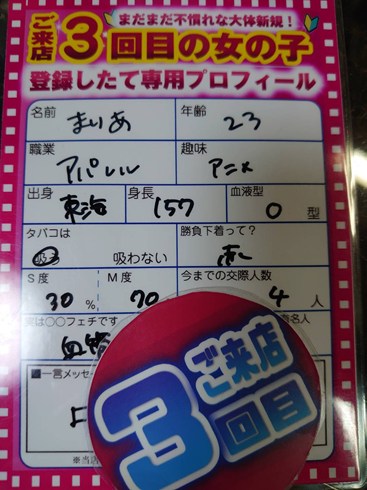 まだまだ不慣れな大体新規!
ご来店3回目の女の子
登録したて専用プロフィール
名前 まりあ 年齢 23
職業 アパレル 趣味 アニメ
出身 東海 身長 157 血液型 O 型
タバコは 吸わない 勝負下着って? 赤
S度 30 % M度 70 今までの交際人数 4 人
は○○フェチです
血管
■一言メッセー
ご来店
3回目
※当店